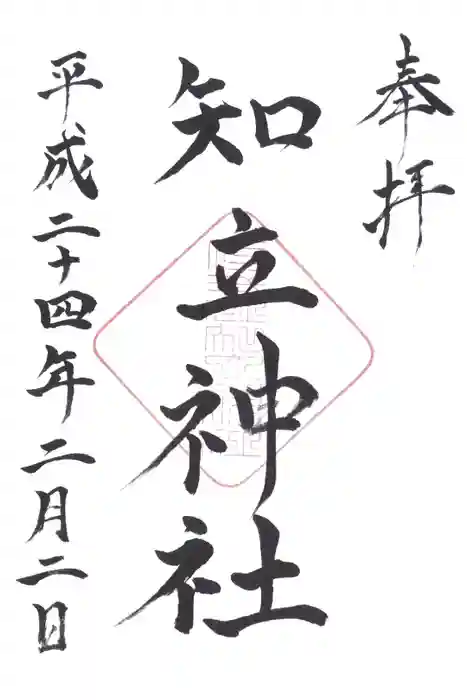 奉拝
知立神社
平成二十四年二月二日